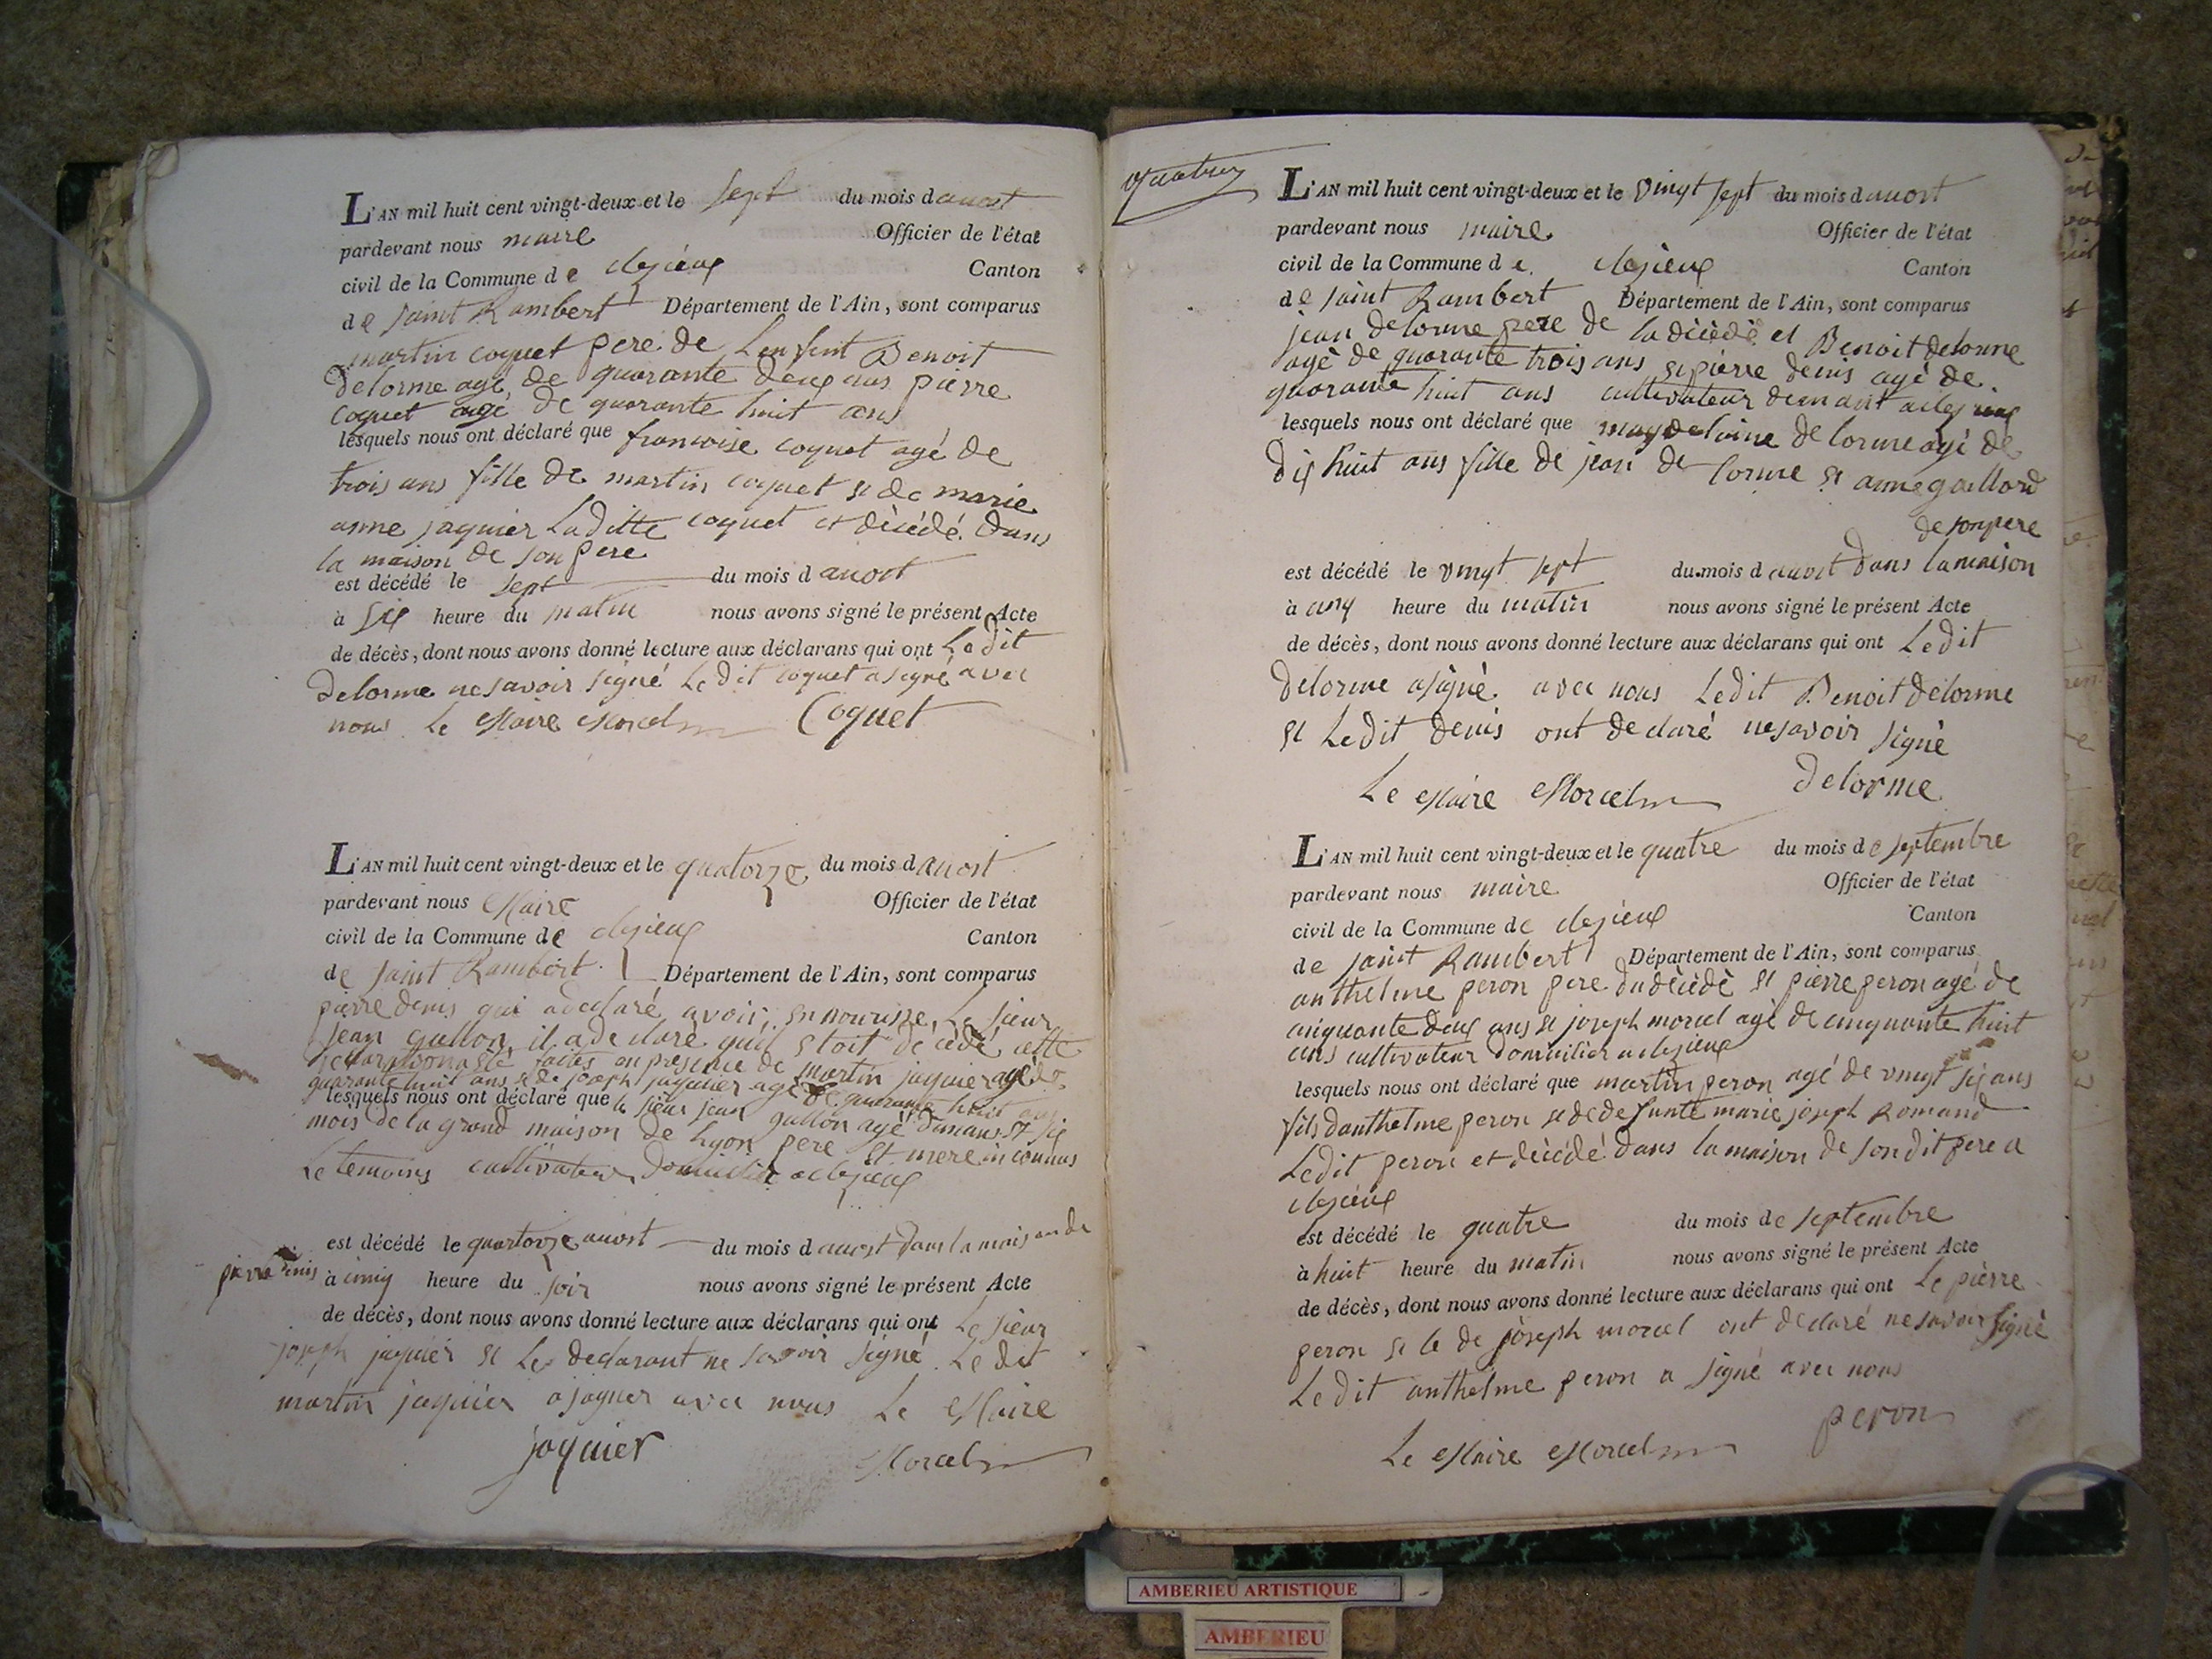 L'AN mil huit cent vingt-deux et le sept du mois d auost
pardevant nous maire Officier de l'état
civil de la Commune d e clezieux Canton
de saint Rambert Département de l'Ain, sont comparus
martin coquet pere de Lenfent Benoit
delorme agé de quarante deux ans pierre
coquet agé de quarante huit ans
lesquels nous ont déclaré que francoise coquet agé de
trois ans fille de martin coquet et de marie
anne jaquier Laditte coquet et décédé dans
la maison de son pere
est décédé le sept du mois d auost
à six heure du matin nous avons signé le présent Acte
de décès, dont nous avons donné lecture aux déclarans qui ont Ledit
Delorme ne savoir signé Ledit coquet a signé avec
nous Le Maire Morcel Coquet
L'AN mil huit cent vingt-deux et le quatorze du mois d auost
pardevant nous Maire Officier de l'état
civil de la Commune de clezieux Canton
de saint Rambert Département de l'Ain, sont comparus
pierre denis qui a declaré avoir en nourisse Le sieur
jean gallon il a declaré quil etoit décédé cette
declaration a eté faites en presence de martin jaquier agé de
quarante huit ans et de joseph jaquier agé de quarante huit ans
lesquels nous ont déclaré que le sieur jean gallon agé dun ans et six
mois de la grand maison de Lyon pere et mere inconnus
Le temoins cultivateur domicilier a clezieux
est décédé le quartorze auost du mois d auost dans la maison de
pierre denis à cinq heure du soir nous avons signé le présent Acte
de décès, dont nous avons donné lecture aux déclarans qui ont Le sieur
joseph jaquier et Le declarant ne savoir signé Le dit
martin jaquier a signer avec nous Le Maire
jaquier Morcel
L'AN mil huit cent vingt-deux et le vingt sept du mois d auost
pardevant nous maire Officier de l'état
civil de la Commune d e clezieux Canton
de saint Rambert Département de l'Ain, sont comparus
jean delorme pere de la décédé et Benoit delorme
agé de quarante trois ans et pierre denis agé de
quarante huit ans cultivateur demant a clezieux
lesquels nous ont déclaré que magdelaine delorme agé de
dix huit ans fille de jean de lorme et anne gallord
de son pere
est décédé le vingt sept du mois d auost dans la maison
à cinq heure du matin nous avons signé le présent Acte
de décès, dont nous avons donné lecture aux déclarans qui ont Ledit
delorme a signé avec nous Ledit Benoit delorme
et Ledit denis ont declaré ne savoir signé
Le Maire Morcel delorme
L'AN mil huit cent vingt-deux et le quatre du mois de septembre
pardevant nous maire Officier de l'état
civil de la Commune de clezieux Canton
de saint Rambert Département de l'Ain, sont comparus
anthelme peron pere du décédé et pierre peron agé de
cinquante deux ans et joseph morcel agé de cinquante huit
ans cultivateur domicilier a clezieux
lesquels nous ont déclaré que martin peron agé de vingt six ans
fils danthelme peron et de defunte marie joseph Romand
Ledit peron et décédé dans la maison de son dit pere a
clezieux
est décédé le quatre du mois de septembre
à huit heure du matin nous avons signé le présent Acte
de décès, dont nous avons donné lecture aux déclarans qui ont Le pierre
peron et le de joseph morcel ont declaré ne savoir signé
Ledit anthelme peron a signé avec nous
Le Maire Morcel peron
AMBERIEU ARTISTIQUE
AMBERIEU